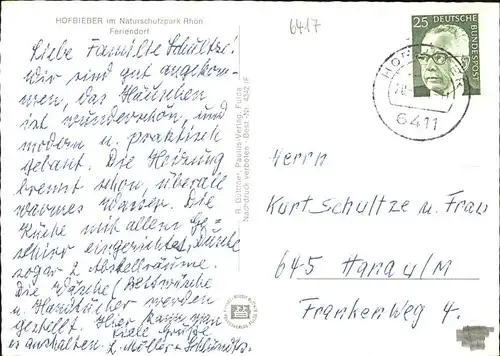 HOFBIEBER im Naturschutzpark Rhön
Feriendorf
6417
Liebe Familie Schultze!
Wir sind gut angekom-
men, das Häuschen
ist wunderschön, und
modern u. praktisch
gebaut. Die Heizung
brennt schon, überall
warmes Wasser. Die
Küche mit allem Ge-
schirr eingerichtet,
sogar 2 Abstellräume.
Die Wäsche, Bettwäsche
u. Handtücher werden
gestellt. Hier kann man
viele Grüße
aushalten. L. Müller +
R. Büttner, Paulus-Verlag, Fulda
Nachdruck verboten · Best.-Nr. 4342
25 DEUTSCHE BUNDESPOST
6411
Herrn
Kurt Schultze u. Frau
645 Hanau/M
Frankenweg 4.